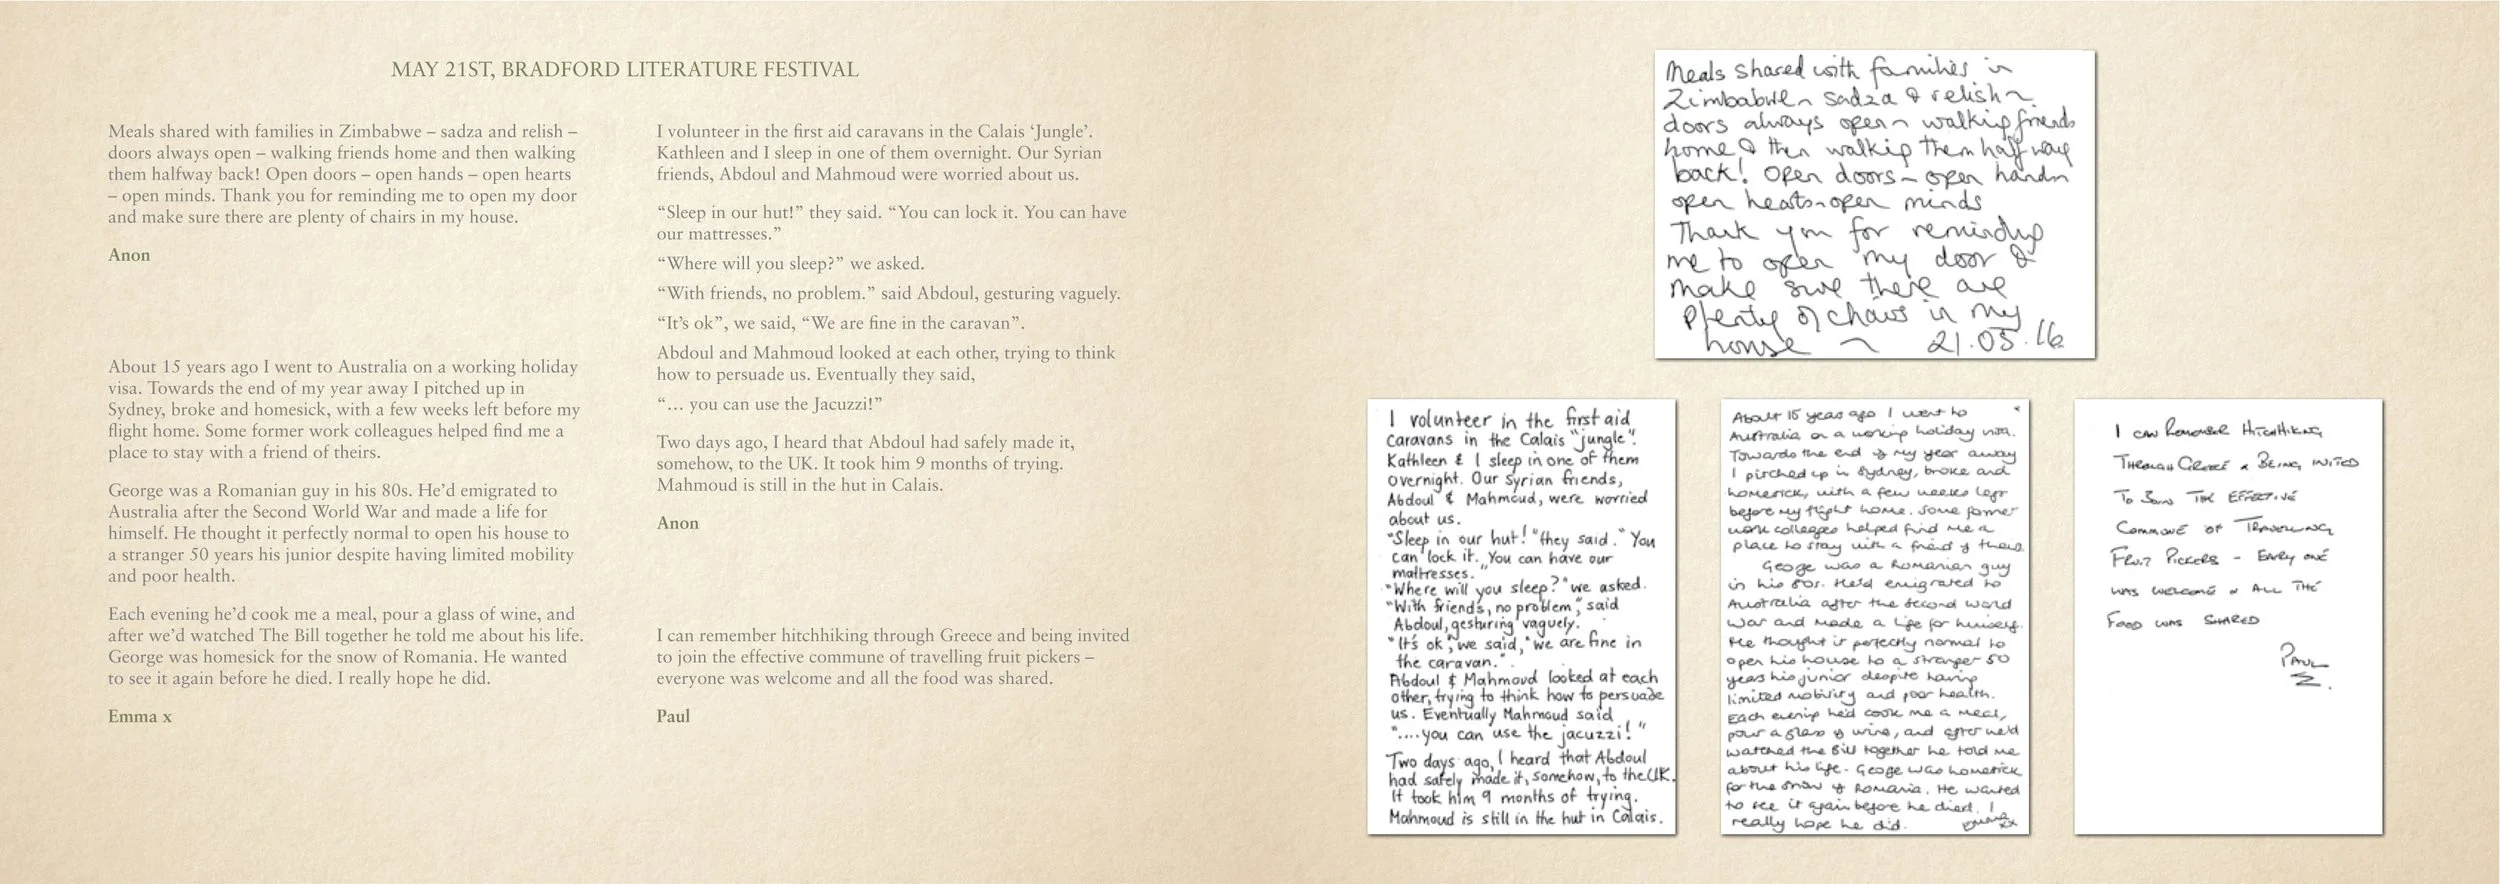 MAY 21ST, BRADFORD LITERATURE FESTIVAL
Meals shared with families in Zimbabwe – sadza and relish –
doors always open – walking friends home and then walking
them halfway back! Open doors – open hands – open hearts
– open minds. Thank you for reminding me to open my door
and make sure there are plenty of chairs in my house.
Anon
About 15 years ago I went to Australia on a working holiday
visa. Towards the end of my year away I pitched up in
Sydney, broke and homesick, with a few weeks left before my
flight home. Some former work colleagues helped find me a
place to stay with a friend of theirs.
George was a Romanian guy in his 80s. He’d emigrated to
Australia after the Second World War and made a life for
himself. He thought it perfectly normal to open his house to
a stranger 50 years his junior despite having limited mobility
and poor health.
Each evening he’d cook me a meal, pour a glass of wine, and
after we’d watched The Bill together he told me about his life.
George was homesick for the snow of Romania. He wanted
to see it again before he died. I really hope he did.
Emma x
I volunteer in the first aid caravans in the Calais ‘Jungle’.
Kathleen and I sleep in one of them overnight. Our Syrian
friends, Abdoul and Mahmoud were worried about us.
“Sleep in our hut!” they said. “You can lock it. You can have
our mattresses.”
“Where will you sleep?” we asked.
“With friends, no problem.” said Abdoul, gesturing vaguely.
“It’s ok”, we said, “We are fine in the caravan”.
Abdoul and Mahmoud looked at each other, trying to think
how to persuade us. Eventually they said,
“… you can use the Jacuzzi!”
Two days ago, I heard that Abdoul had safely made it,
somehow, to the UK. It took him 9 months of trying.
Mahmoud is still in the hut in Calais.
Anon
I can remember hitchhiking through Greece and being invited
to join the effective commune of travelling fruit pickers –
everyone was welcome and all the food was shared.
Paul
Meals shared with families in
Zimbabwe ~ sadza & relish ~
doors always open ~ walking friends
home & then walking them half way
back! Open doors ~ open hands
open hearts ~ open minds
Thank you for reminding
me to open my door &
make sure there are
plenty of chairs in my
house ~ 21.05.16
I volunteer in the first aid
caravans in the Calais "jungle".
Kathleen & I sleep in one of them
overnight. Our Syrian friends,
Abdoul & Mahmoud, were worried
about us.
"Sleep in our hut!" they said. "You
can lock it. You can have our
mattresses."
"Where will you sleep?" we asked.
"With friends, no problem," said
Abdoul, gesturing vaguely.
"It's ok", we said, "we are fine in
the caravan."
Abdoul & Mahmoud looked at each
other, trying to think how to persuade
us. Eventually Mahmoud said
"....you can use the jacuzzi!"
Two days ago, I heard that Abdoul
had safely made it, somehow, to the UK.
It took him 9 months of trying.
Mahmoud is still in the hut in Calais.
About 15 years ago I went to
Australia on a working holiday visa.
Towards the end of my year away
I pitched up in Sydney, broke and
homesick, with a few weeks left
before my flight home. Some former
work colleages helped find me a
place to stay with a friend of theirs.
George was a Romanian guy
in his 80s. He'd emigrated to
Australia after the Second World
War and made a life for himself.
He thought it perfectly normal to
open his house to a stranger 50
years his junior despite having
limited mobility and poor health.
Each evening he'd cook me a meal,
pour a glass of wine, and after we'd
watched the Bill together he told me
about his life. George was homesick
for the snow of Romania. He wanted
to see it again before he died. I
really hope he did. Emma xx
I CAN REMEMBER HITCHHIKING
THROUGH GREECE & BEING INVITED
TO JOIN THE EFFECTIVE
COMMUNE OF TRAVELLING
FRUIT PICKERS – EVERY ONE
WAS WELCOME & ALL THE
FOOD WAS SHARED
PAUL